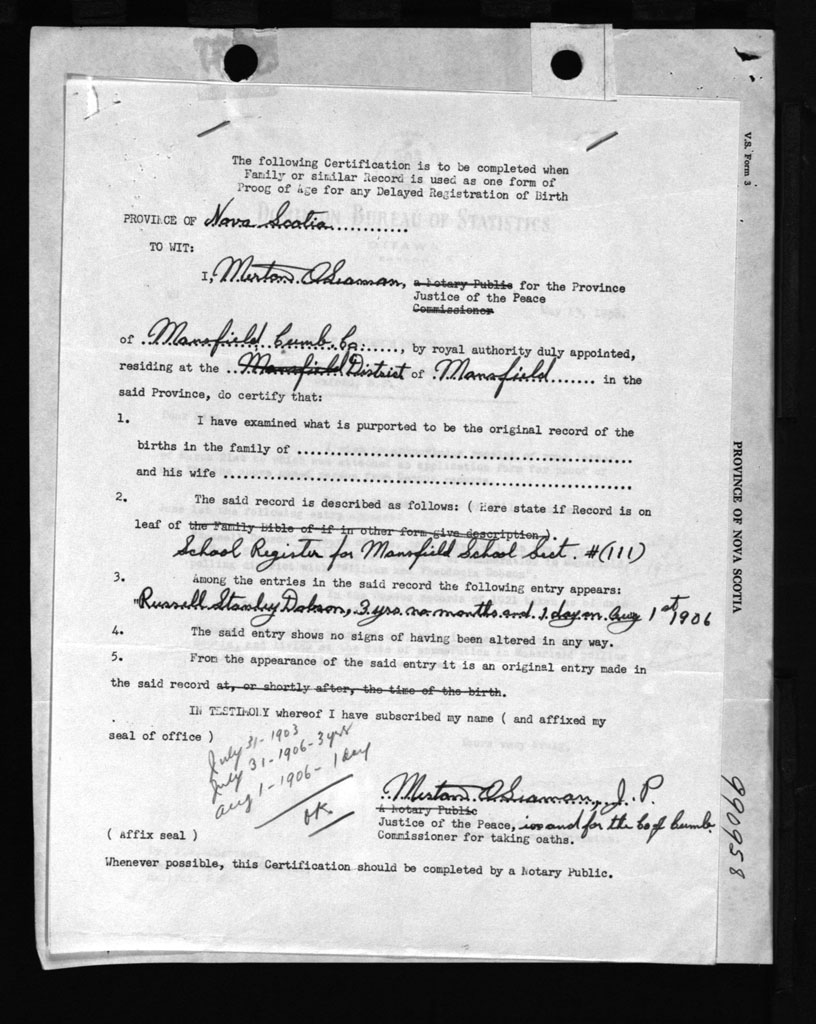 The following Certification is to be completed when
Family or similar Record is used as one form of
Proog of Age for any Delayed Registration of Birth
V.S. Form 3
BUREAU OF STATISTICS
OTTAWA
PROVINCE OF Nova Scotia............
TO WIT:
I, Merton O Seaman, a Notary Public for the Province
Justice of the Peace
Commissioner
of Mansfield Cumb. Co. ....., by royal authority duly appointed,
residing at the ..Mansfield District of Mansfield....... in the
said Province, do certify that:
1. I have examined what is purported to be the original record of the
births in the family of ................................................
and his wife ...........................................................
PROVINCE OF NOVA SCOTIA
2. The said record is described as follows: ( Here state if Record is on
leaf of the Family Bible of if in other form give description ).
School Register for Mansfield School Sect. #(111)
3. Among the entries in the said record the following entry appears:
"Russell Stanley Dobson, 3 yrs. no months and 1 day on Aug 1st 1906
4. The said entry shows no signs of having been altered in any way.
5. From the appearance of the said entry it is an original entry made in
the said record at, or shortly after, the time of the birth.
IN TESTIMOLY whereof I have subscribed my name ( and affixed my
seal of office )
July 31-1903
July 31-1906-3 yrs
Aug 1-1906- 1 day
OK
Merton O Seaman, J. P.
A Notary Public
Justice of the Peace, in and for the Co of Cumb.
( Affix seal ) Commissioner for taking oaths.
990958
Whenever possible, this Certification should be completed by a Notary Public.